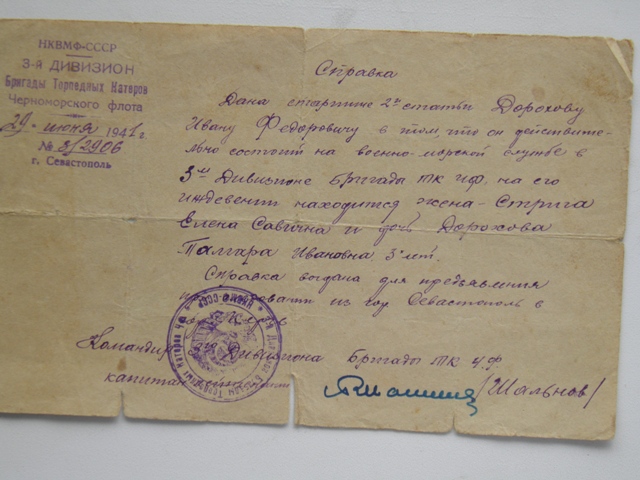 НКВМФ-СССР
3-й ДИВИЗИОН
Бригады Торпедных Катеров
Черноморского флота
29 - июня 1941 г.
№ 3/2906
г. Севастополь
Справка
Дана старшине 2й статьи Дорохову
Ивану Федоровичу в том, что он действите-
льно состоит на военно-морской службе в
3ем Дивизионе Бригады ТК ЧФ, на его
иждевении находится жена - Стрига
Елена Савична и дочь Дорохова
Тамара Ивановна 3х лет.
Справка выдана для предъявления
из гор Севастополь в
Командир Дивизиона Бригады ТК Ч.Ф.
капитан
/Шальнов/